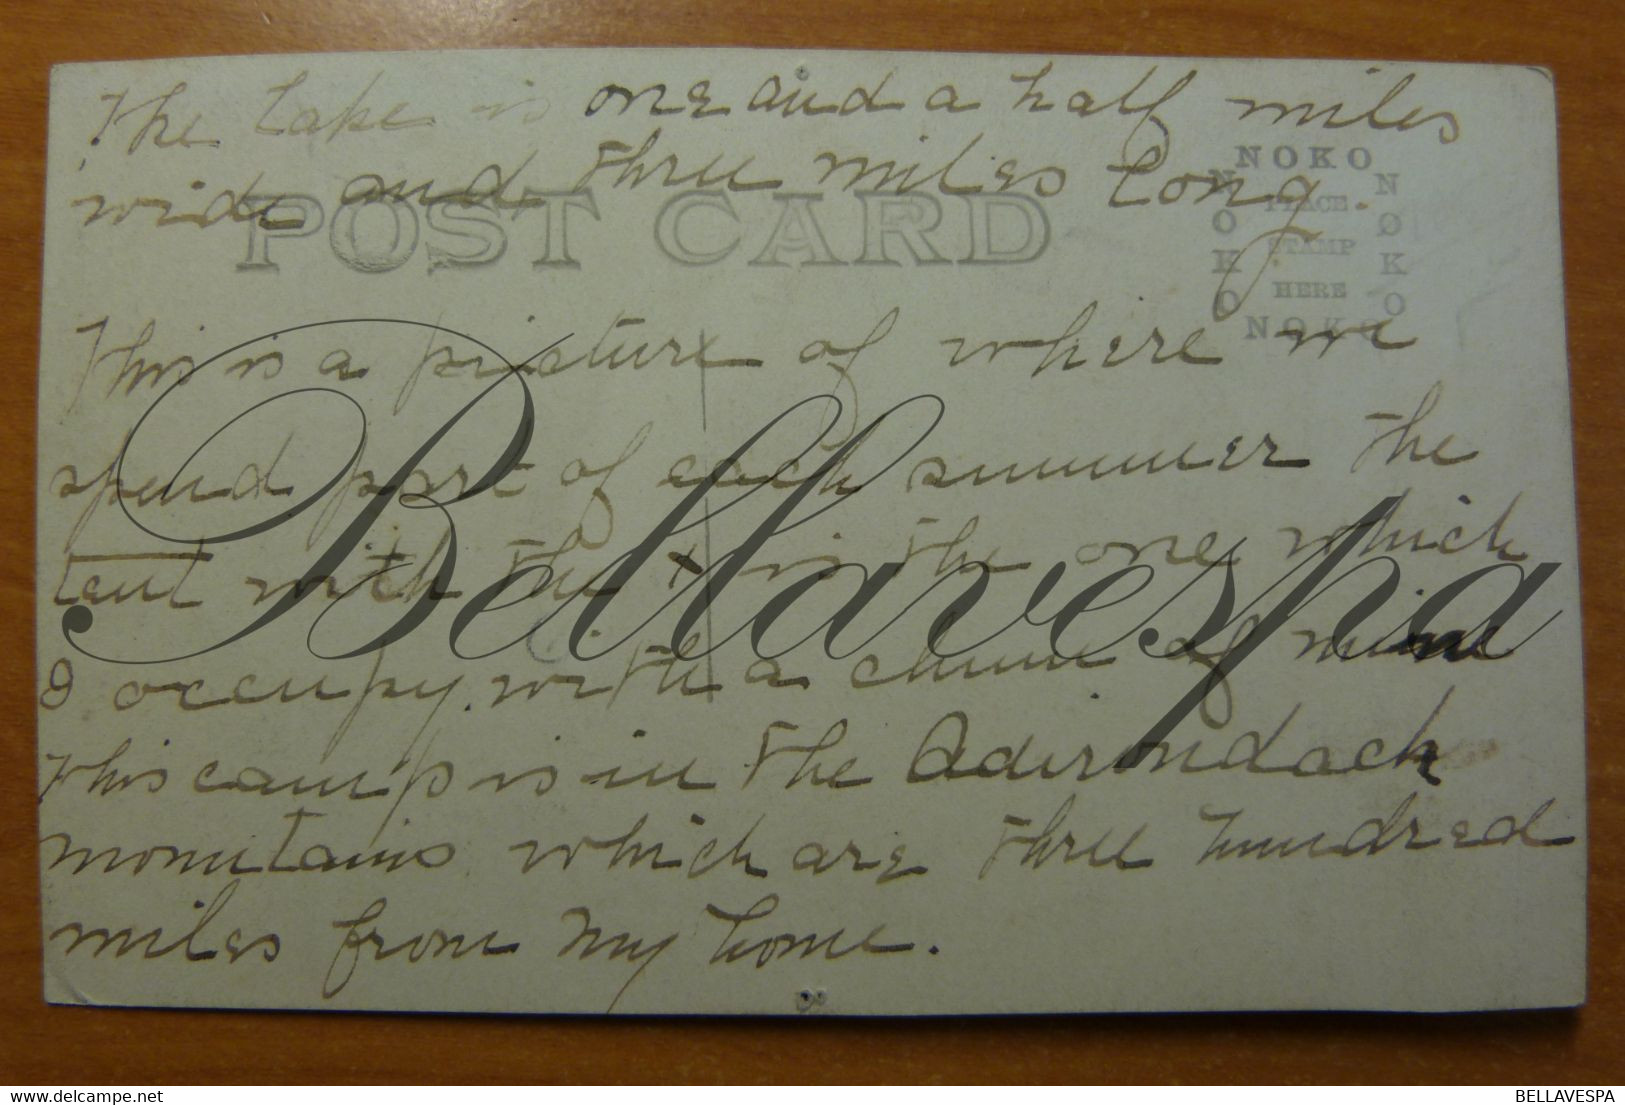 The Lake is one and a half miles
wide and three miles long.
POST CARD
NOKO
NOKO
NOKO
NOKO
PLACE
STAMP
HERE
This is a picture of where we
spend part of each summer the
tent with the x is the one which
I occupy with a chum of mine
this camp is in the Adirondack
mountains which are three hundred
miles from my home.
Bellavespa
delcampe.net
BELLAVESPA